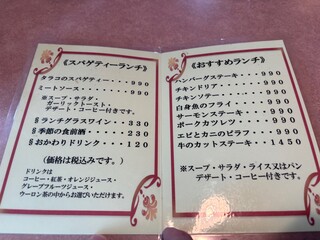 《スパゲティーランチ》
タラコのスパゲティー・・・990
ミートソース・・・・・・990
※スープ・サラダ・
ガーリックトースト・
デザート・コーヒー付きです。
§ランチグラスワイン・・330
§季節の食前酒・・・・・230
§おかわりドリンク・・・120
(価格は税込みです。)
ドリンクは
コーヒー・紅茶・オレンジジュース・
グレープフルーツジュース・
ウーロン茶の中からお選びいただけます。
《おすすめランチ》
ハンバーグステーキ・・・990
チキンドリア・・・・・・990
チキンソテー・・・・・・990
白身魚のフライ・・・・・990
サーモンステーキ・・・・990
ポークカツレツ・・・・・990
エビとカニのピラフ・・・990
牛のカットステーキ・・・1450
※スープ・サラダ・ライス又はパン
デザート・コーヒー付きです。